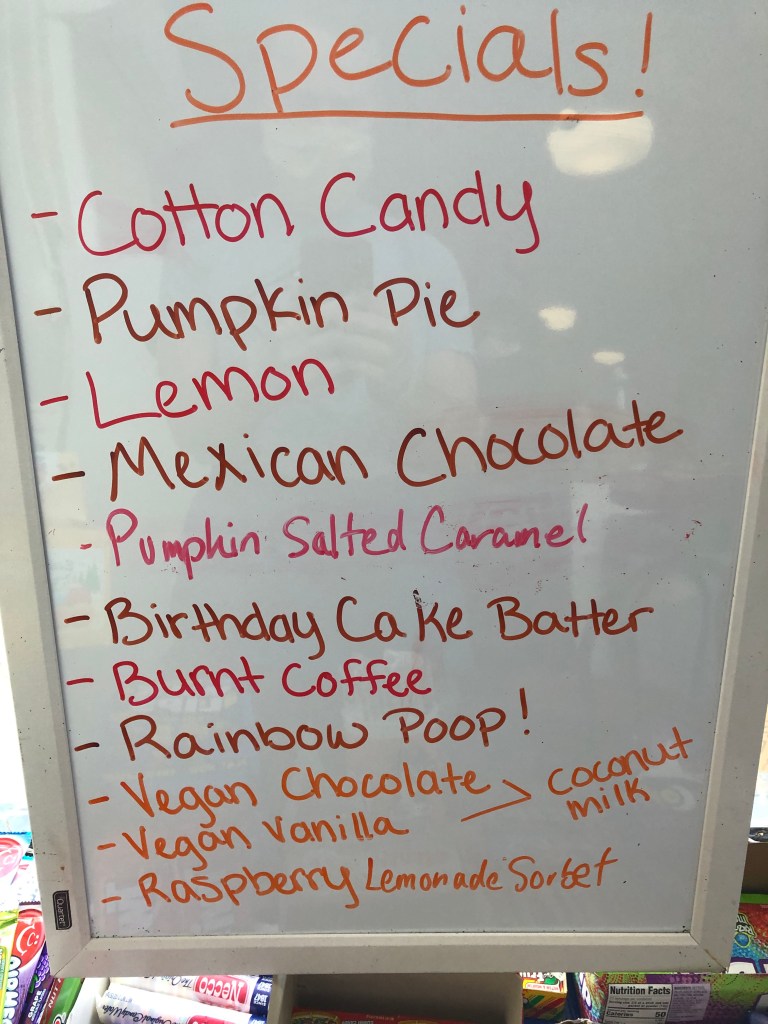 Specials!
- Cotton Candy
- Pumpkin Pie
- Lemon
- Mexican Chocolate
- Pumpkin Salted Caramel
- Birthday Cake Batter
- Burnt Coffee
- Rainbow Poop!
- Vegan Chocolate
- Vegan Vanilla
> coconut milk
- Raspberry Lemonade Sorbet
Quartet
NECCO
Nutrition Facts
Calories 50